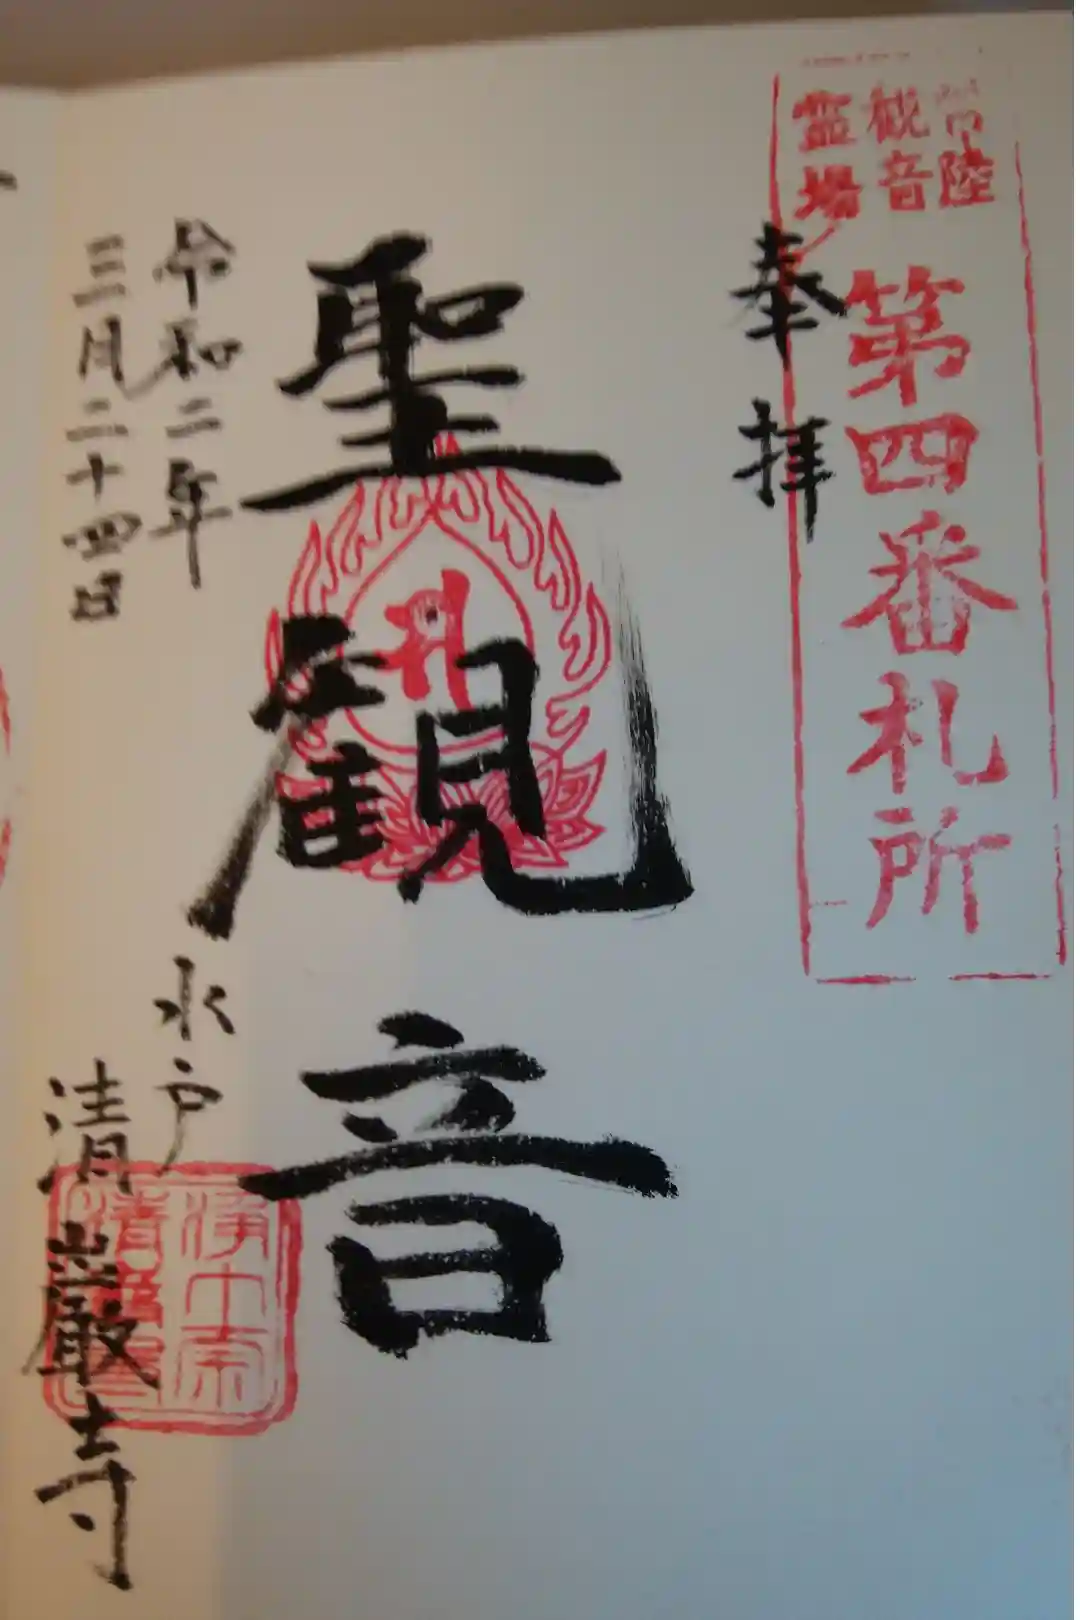 常陸
観音
霊場
第四番札所
奉拝
聖観音
令和二年
三月二十四日
水戸
清巌寺
浄土宗